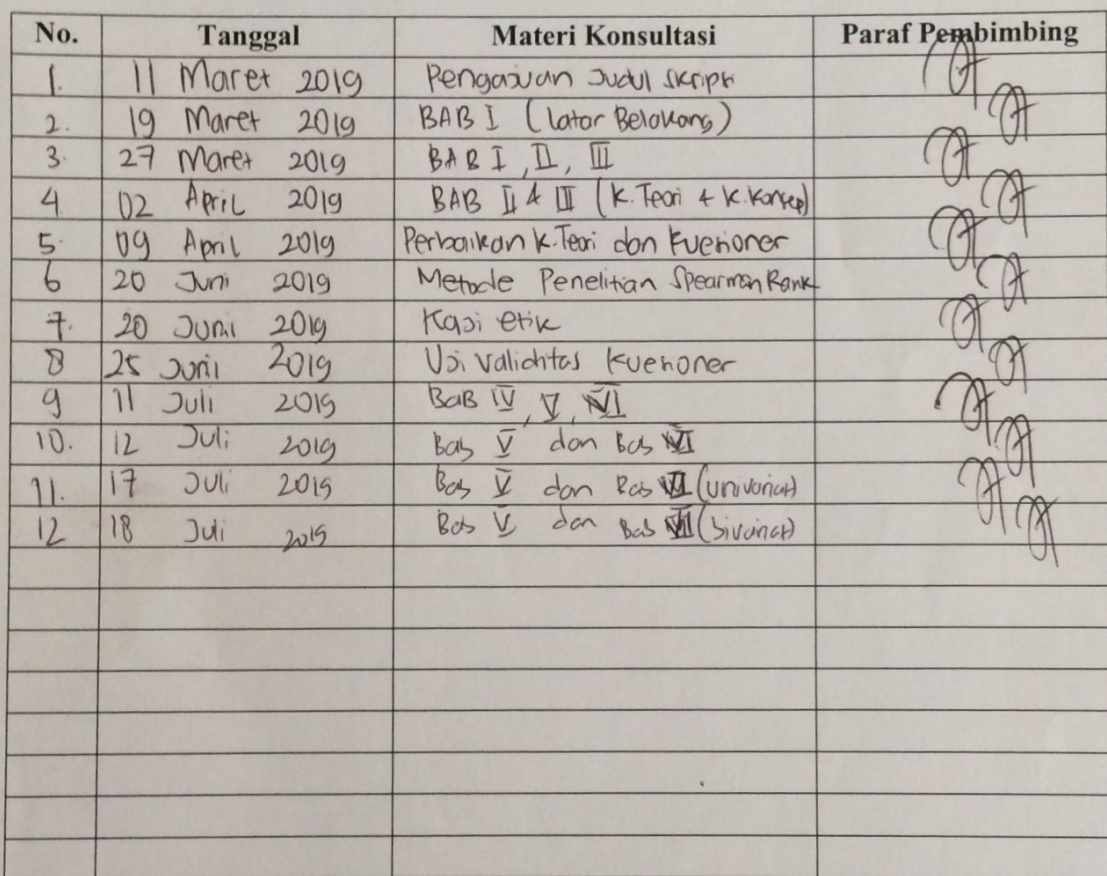 No. Tanggal Materi Konsultasi Paraf Pembimbing
1. 11 Maret 2019 Pengajuan Judul Skripsi
2. 19 Maret 2019 BAB I (latar Belakang)
3. 27 Maret 2019 BAB I, II, III
4 02 April 2019 BAB II & III (K. Teori + K. Konsep)
5. 09 April 2019 Perbaikan K. Teori dan Kuesioner
6 20 Juni 2019 Metode Penelitian Spearman Rank
7. 20 Juni 2019 Kaji etik
8 25 Juni 2019 Uji validitas Kuesioner
9 11 Juli 2019 BaB IV, V, VI
10. 12 Juli 2019 Bab V dan Bab VI
11. 17 Juli 2019 Bab V dan Bab VI (univariat)
12 18 Juli 2019 Bab V dan Bab VI (bivariat)